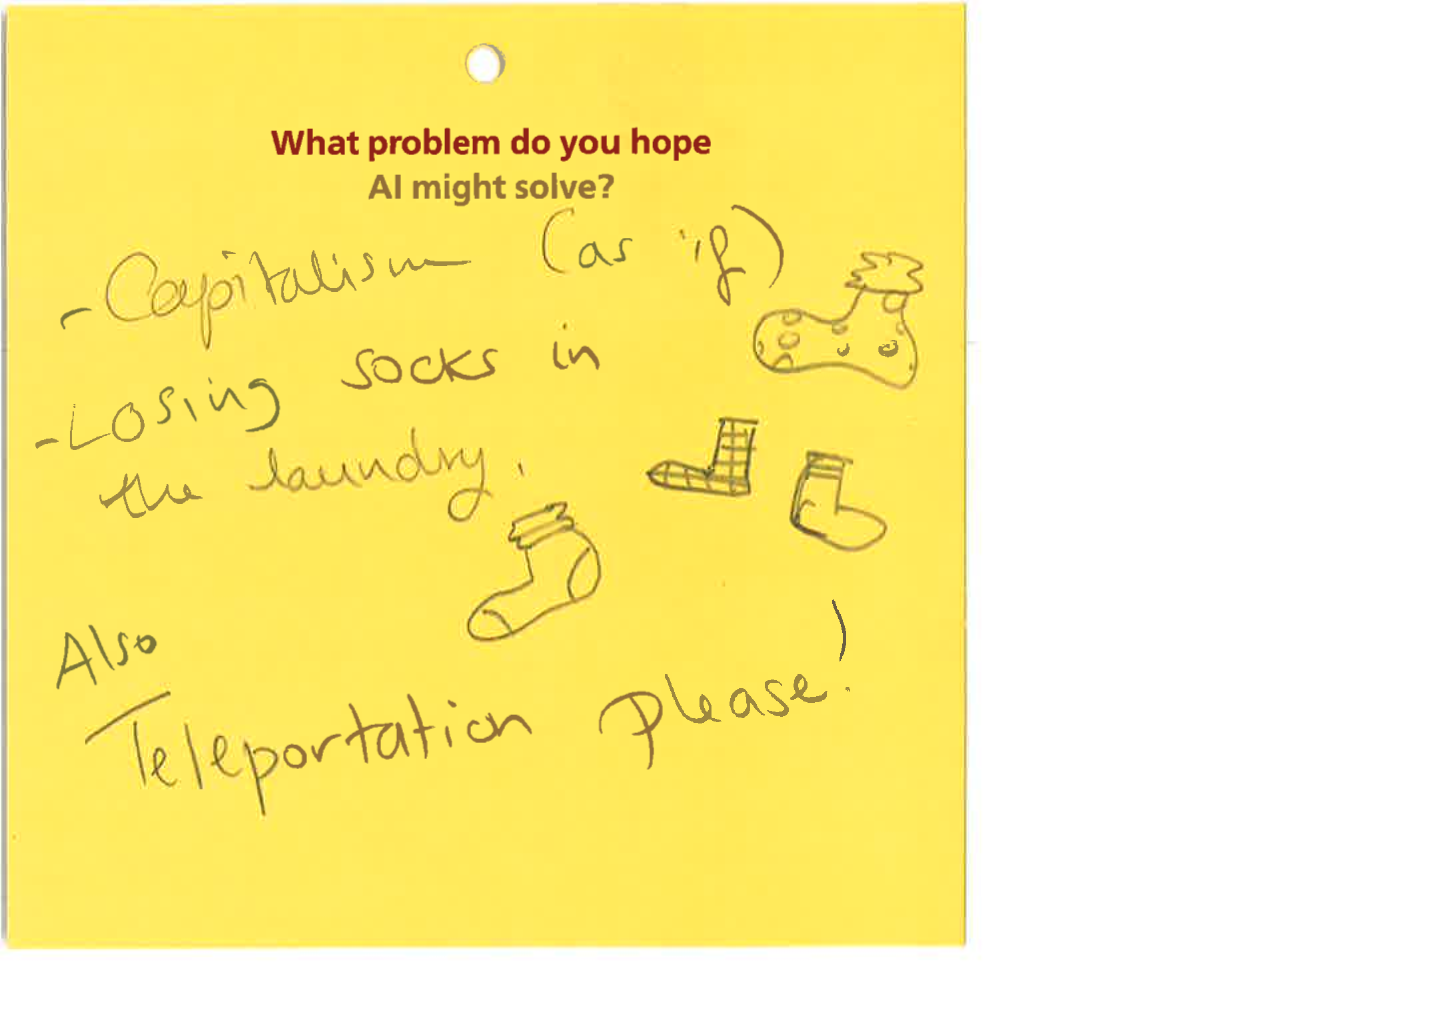 What problem do you hope
AI might solve?
- Capitalism (as if)
- Losing socks in
the laundry.
Also
Teleportation please!